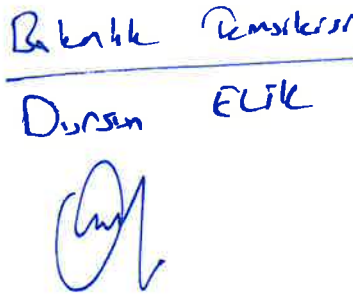 Bakanlık Temsilcisi
Dursun ELİK